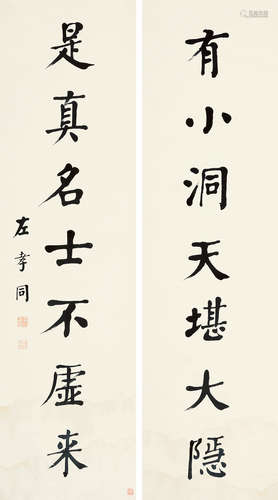 有小洞天堪大隱
是真名士不虛来
左孝同